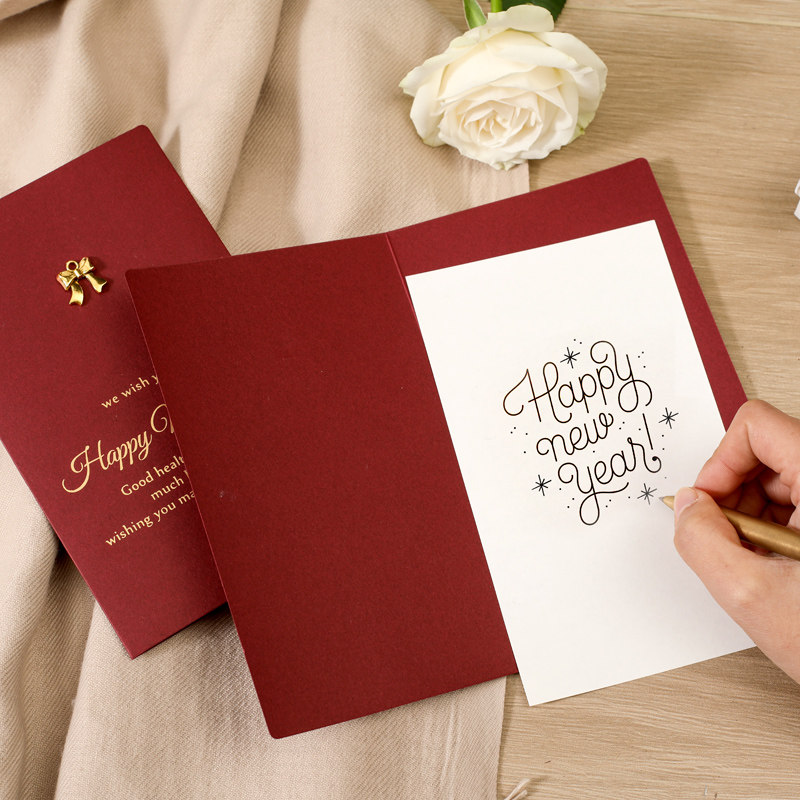 we wish
Happy
Good
much
wishing you
Happy
new
year!